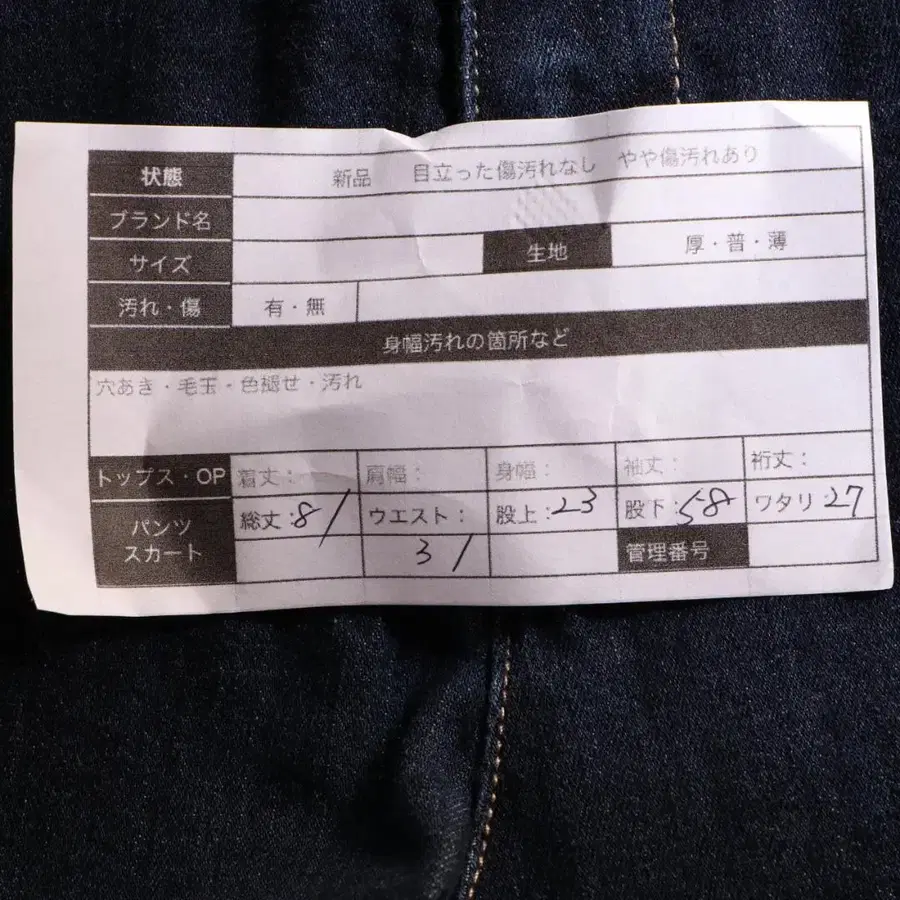 状態 新品 目立った傷汚れなし やや傷汚れあり
ブランド名
サイズ 生地 厚・普・薄
汚れ・傷 有・無
身幅汚れの箇所など
穴あき・毛玉・色褪せ・汚れ
トップス・OP 着丈： 肩幅： 身幅： 袖丈： 裄丈：
パンツ スカート 総丈：81 ウエスト：31 股上：23 股下：58 ワタリ：27
管理番号